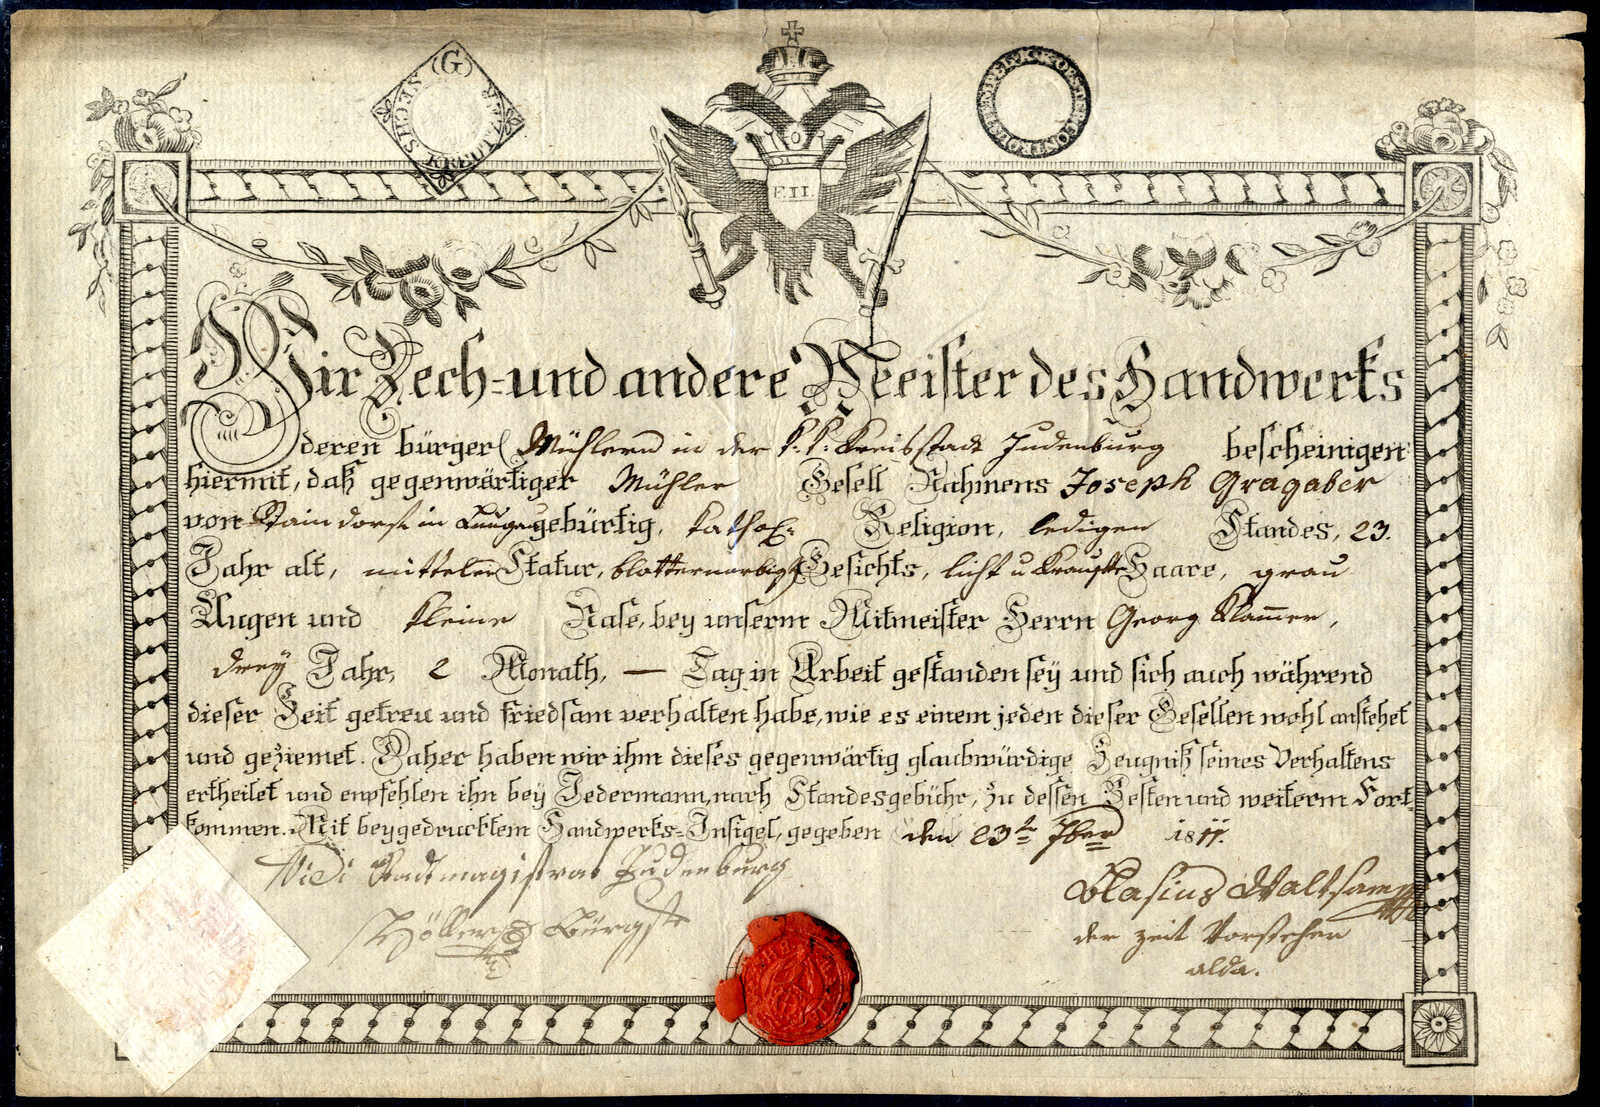 (G)
SECHS KREUTZER
F. II.
Wir Zech- und andere Meister des Handwerks
deren bürgerl Mühlern in der k. k. Kreisstadt Judenburg bescheinigen
hiermit, daß gegenwärtiger Mühler Gesell Nahmens Joseph Gragaber
von in gebürtig, kathol: Religion, ledigen Standes, 23.
Jahr alt, mittelern Statur, blatternarbigs Gesichts, licht u Haare, grau
Augen und kleine Nase, bey unserm Mitmeister Herrn Georg Klamer,
drey Jahr, 2 Monath, — Tag in Arbeit gestanden sey und sich auch während
dieser Zeit getreu und friedsam verhalten habe, wie es einem jeden dieser Gesellen wohl anstehet
und geziemet. Daher haben wir ihm dieses gegenwärtig glaubwürdige Zeugniß seines Verhaltens
ertheilet und empfehlen ihn bey Jedermann, nach Standesgebühr, zu dessen Besten und weiterm Fort-
kommen. Mit beygedrucktem Handwerks-Insigel, gegeben den 23te 7ber 1811.
Vidi Stadtmagistrat Judenburg
Blasius
der zeit Vorsteher
alda.